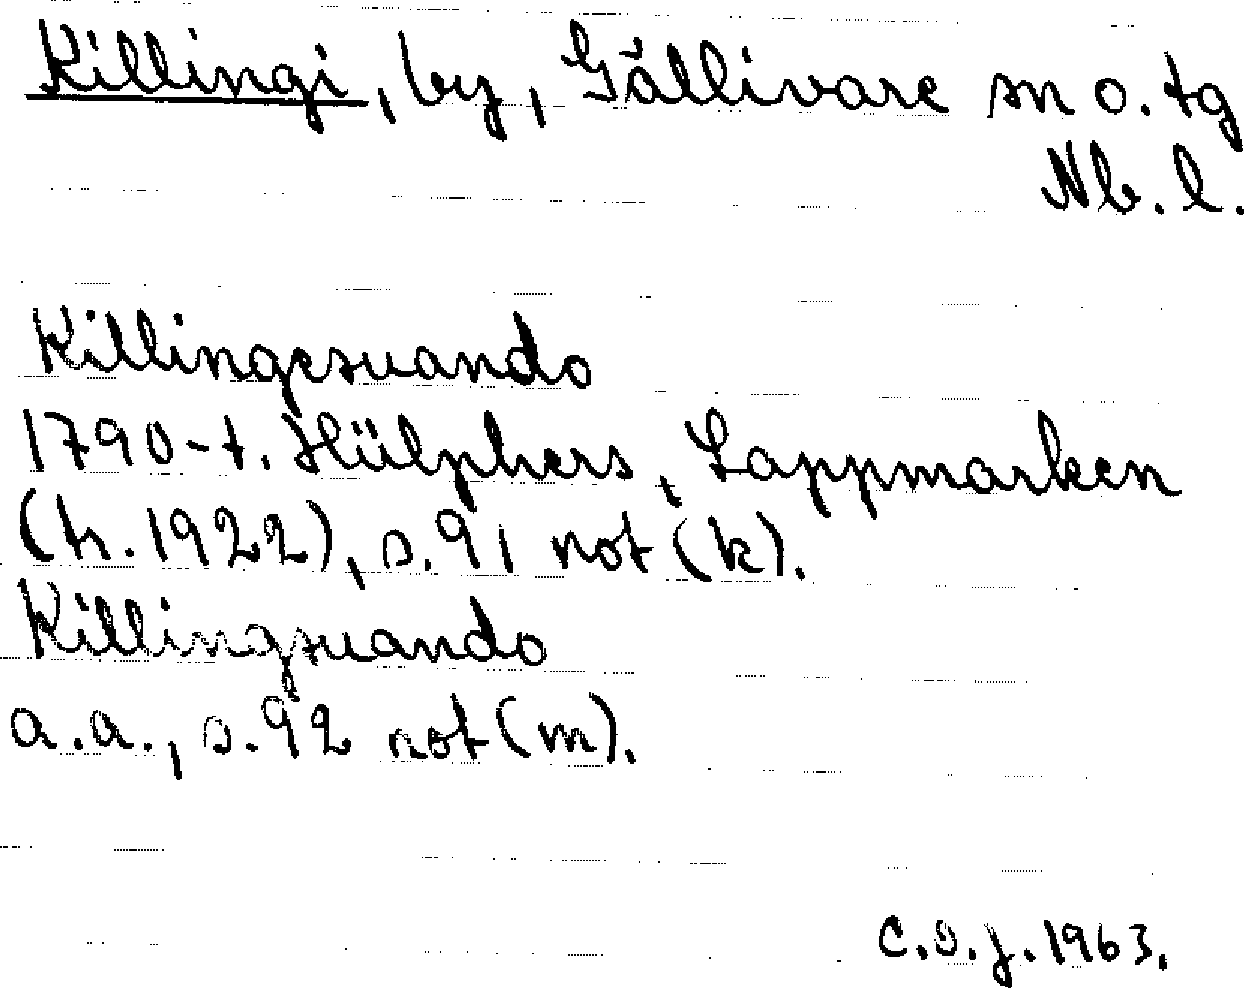 Killingi, by, Gällivare sn o. tg
Nb. l.
Killingesuando
1790-t. Hülphers, Lappmarken
(tr. 1922), s. 91 not (k).
Killingsuando
a.a., s. 92 not (m).
C.O.J. 1963.